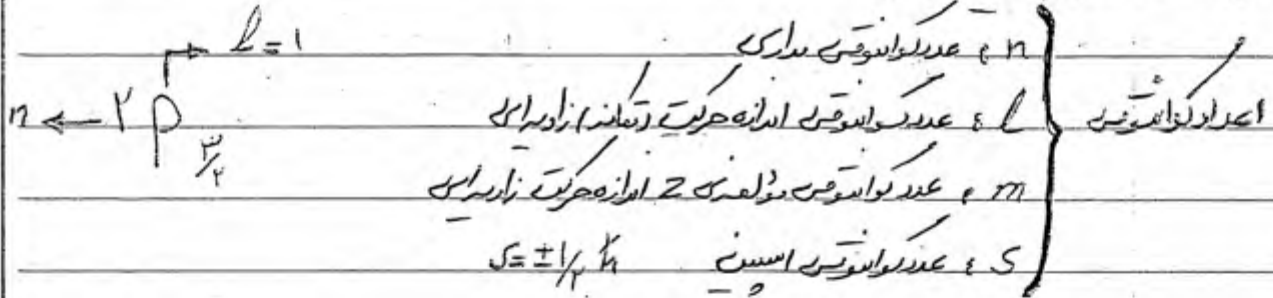 اعداد کوانتومی
n : عدد کوانتومی مداری
l : عدد کوانتومی اندازه حرکت (تکانه) زاویه‌ای
m : عدد کوانتومی مؤلفه‌ی z اندازه حرکت زاویه‌ای
s : عدد کوانتومی اسپین s = ±۱/۲ ħ
l = ۱
n ← ۲P ۳/۲